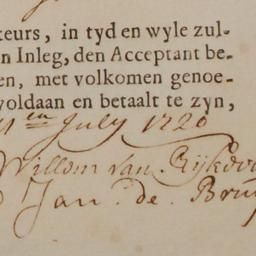 keurs, in tyd en wyle zul-
n Inleg, den Acceptant be-
en, met volkomen genoe-
voldaan en betaalt te zyn,
en July 1720
Willem van
Jan. de Bruy